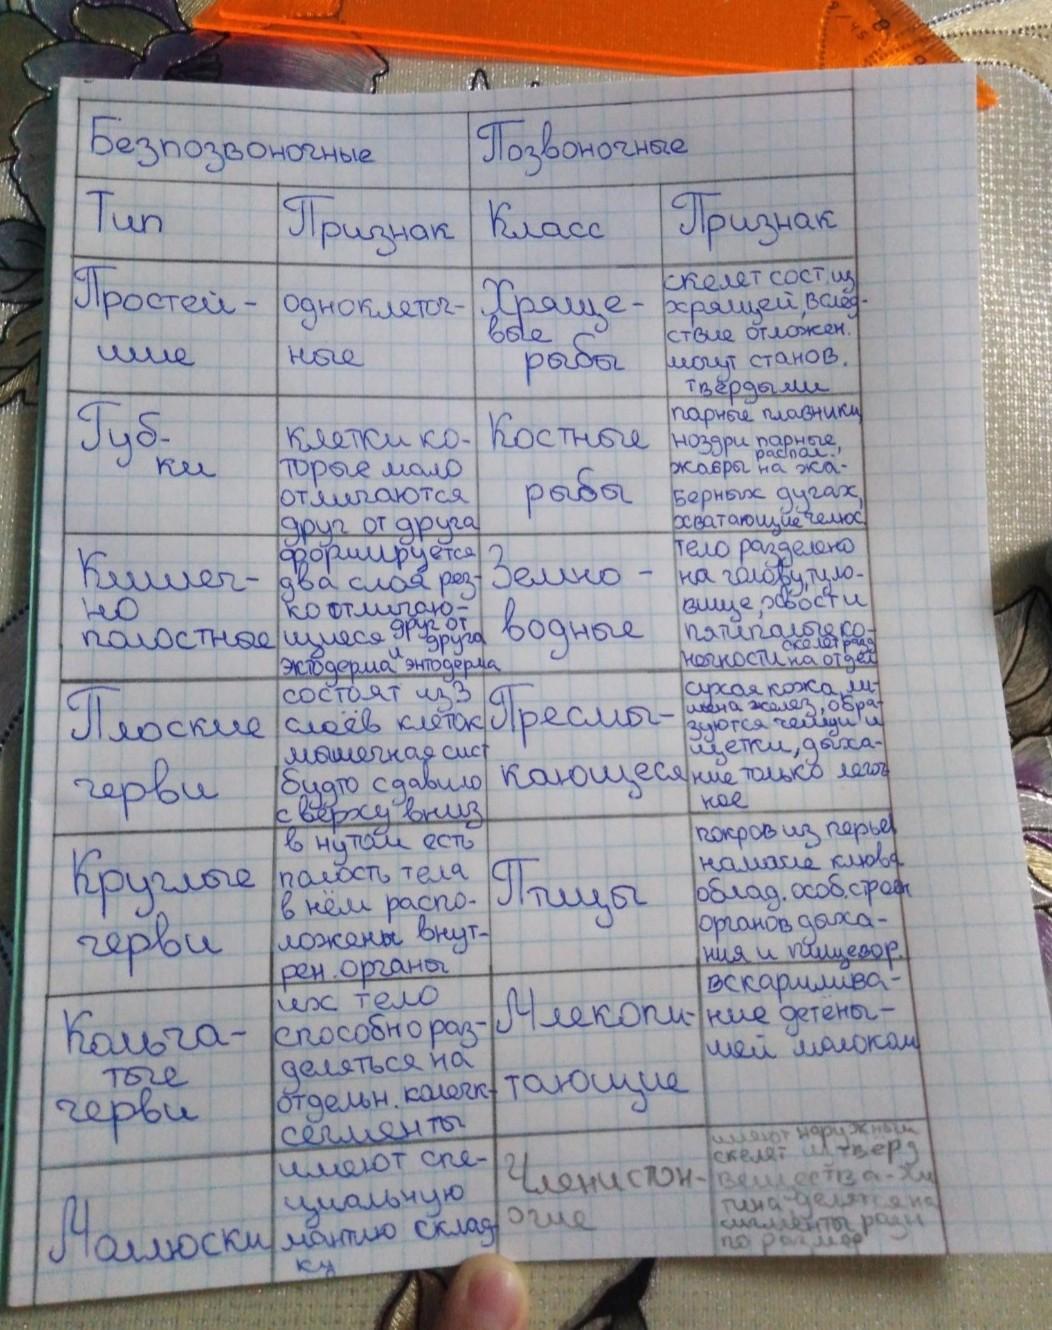 Безпозвоночные
Позвоночные
Тип
Признак
Класс
Признак
Простей-
шие
одноклеточ-
ные
Хряще-
вые
рыбы
скелет сост. из
хрящей, вслед-
ствие отложен.
могут станов.
твёрдыми
Губ-
ки
клетки ко-
торые мало
отличаются
друг от друга
Костные
рыбы
парные плавники,
ноздри парные,
распол.
жабры на жа-
берных дугах,
хватающие челюс
Кишеч-
но
полостные
формируется
два слоя рез-
ко отличаю-
щиеся друг от
друга
и
эктодерма энтодерма
Земно-
водные
тело разделено
на голову, туло-
вище, хвост и
пятипалые ко-
скелет разд
нечности на отдел
Плоские
черви
состоят из 3
слоёв клеток
мышечная сист
будто сдавило
сверху вниз
Пресмы-
кающеся
сухая кожа, ли-
шена желез, обра-
зуются чешуи и
щетки, дыха-
ние только легоч
ное
Круглые
черви
в нутри есть
полость тела
в нём распо-
ложены внут-
рен. органы
Птицы
покров из перьев
наличие клюва
облад. особ. строен
органов дыха-
ния и пищевар.
Кольча-
тые
черви
их тело
способно раз-
деляться на
отдельн. колечк-
сегменты
Млекопи-
тающие
вскармлива-
ние детёны-
шей молоком
Моллюски
имеют спе-
циальную
мантию склад
ку
Членистон-
огие
имеют наружный
скелет из тверд
вещества-хи
тина-делятся на
сигменты разн
по размер